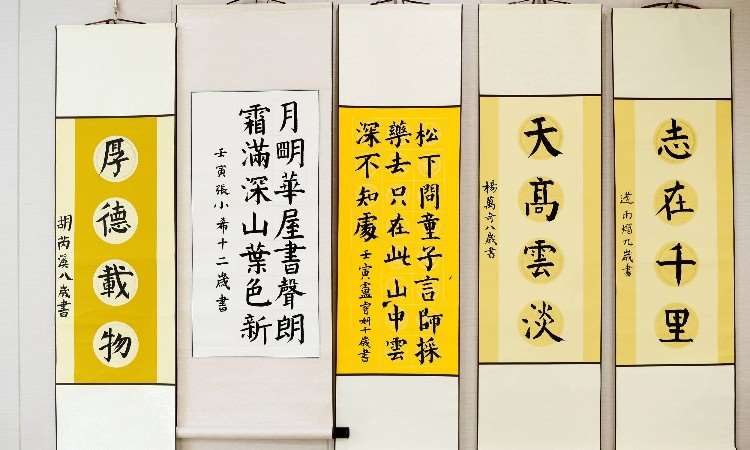 志在千里
雨
九歲書
天髙雲淡
楊萬奇八歲書
松下問童子言師採
藥去只在此山中雲
深不知處
壬寅盧睿妍十歲書
月眀華屋書聲朗
霜滿深山葉色新
壬寅張小希十二歲書
厚德載物
胡芮溪八歲書